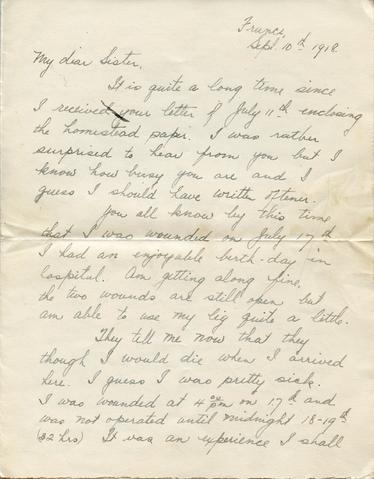 France,
Sept. 10th 1918
My dear Sister,
It is quite a long time since
I received your letter of July 11th enclosing
the homestead paper. I was rather
surprised to hear from you but I
know how busy you are and I
guess I should have written oftener.
You all know by this time
that I was wounded on July 17th
I had an enjoyable birth-day in
hospital. Am getting along fine,
the two wounds are still open but
am able to use my leg quite a little.
They tell me now that they
though I would die when I arrived
here. I guess I was pretty sick.
I was wounded at 4 00 pm on 17th and
was not operated until midnight 18-19th
(32 hrs) It was an experience I shall